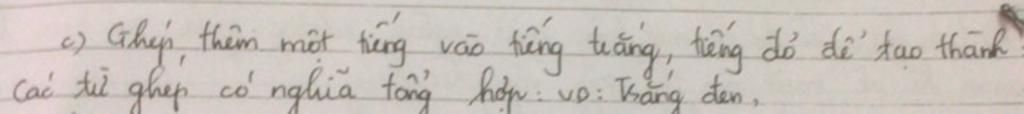 c) Ghép thêm một tiếng vào tiếng trắng, tiếng đỏ để tạo thành
các từ ghép có nghĩa tổng hợp: VD: Trắng đen,